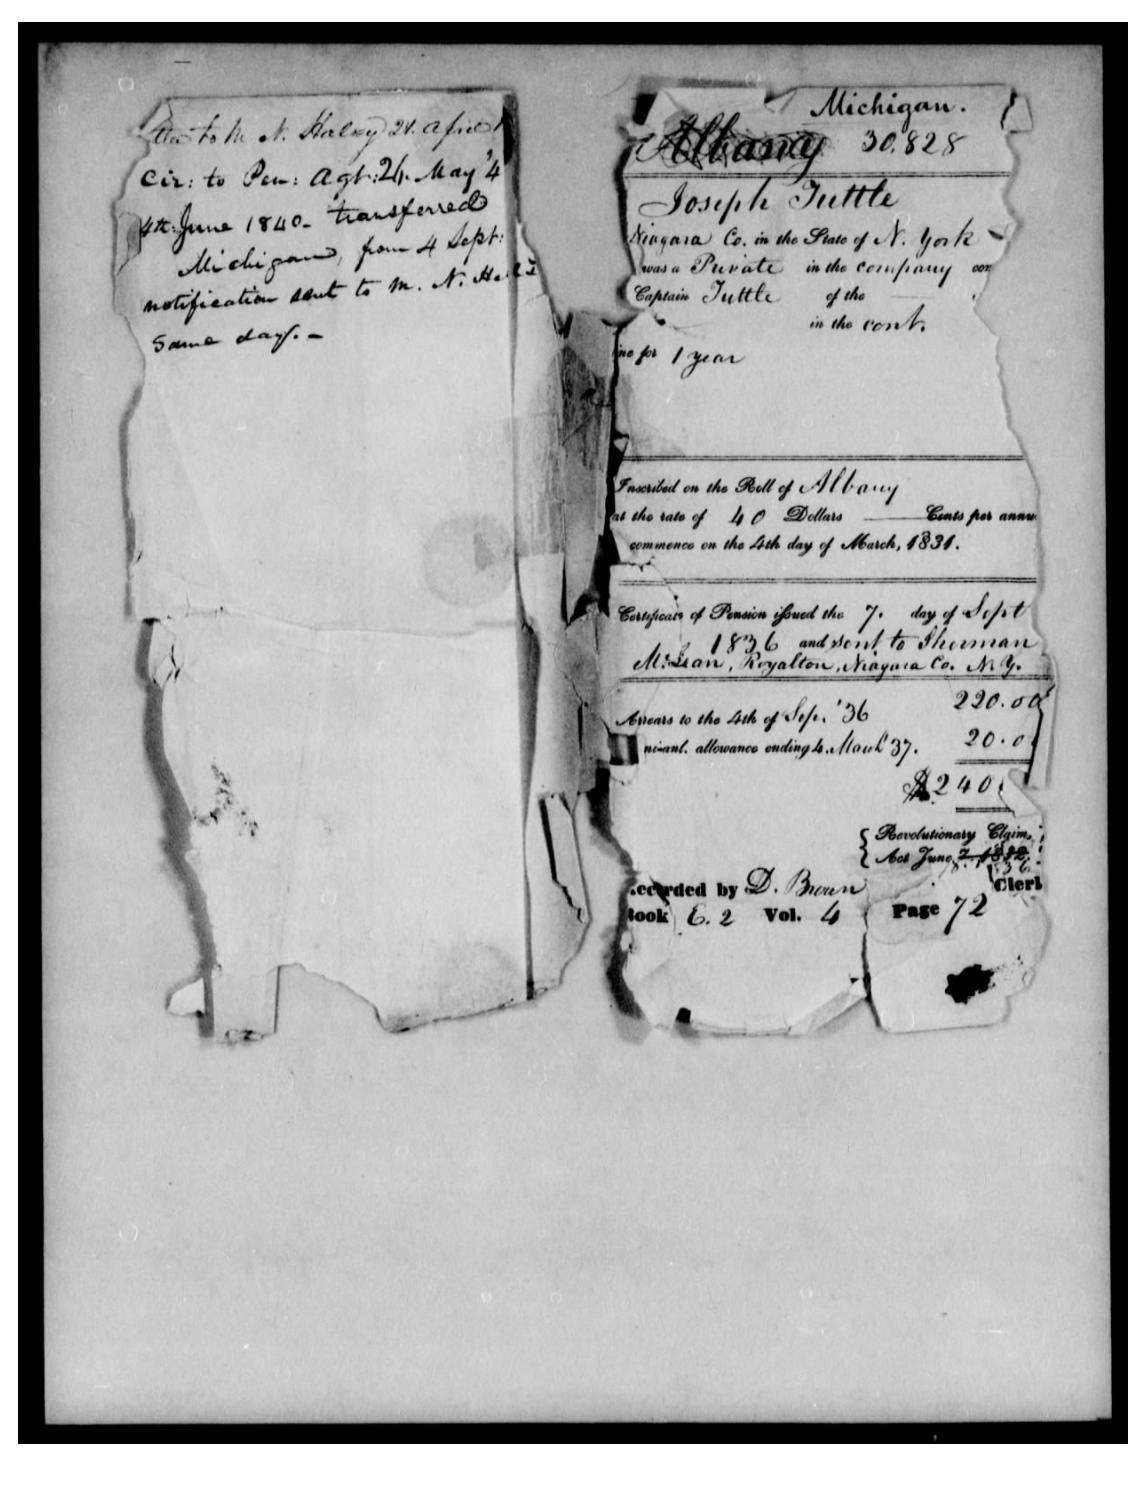 to M. N. Halsey 21. april
Cir: to Pen: Agt: 24. May '4
4th June 1840 - transferred
Michigan, from 4 Sept:
notification sent to M. N.
Same day. -
Michigan.
Albany 30.828
Joseph Tuttle
Niagara Co. in the State of N. York
was a Private in the company com
Captain Tuttle of the
in the cont.
ne for 1 year
Inscribed on the Roll of Albany
at the rate of 40 Dollars Cents per annu
commence on the 4th day of March, 1831.
Certificate of Pension issued the 7. day of Sept
1836 and sent to Sherman
McLean, Royalton, Niagara Co. N.Y.
Arrears to the 4th of Sep. '36 220.00
ni-anl. allowance ending 4. March '37. 20.0
$240.
{ Revolutionary Claim,
Act June 7. 1832.
36
ecorded by D. Brown Clerk
Book E. 2 Vol. 4 Page 72